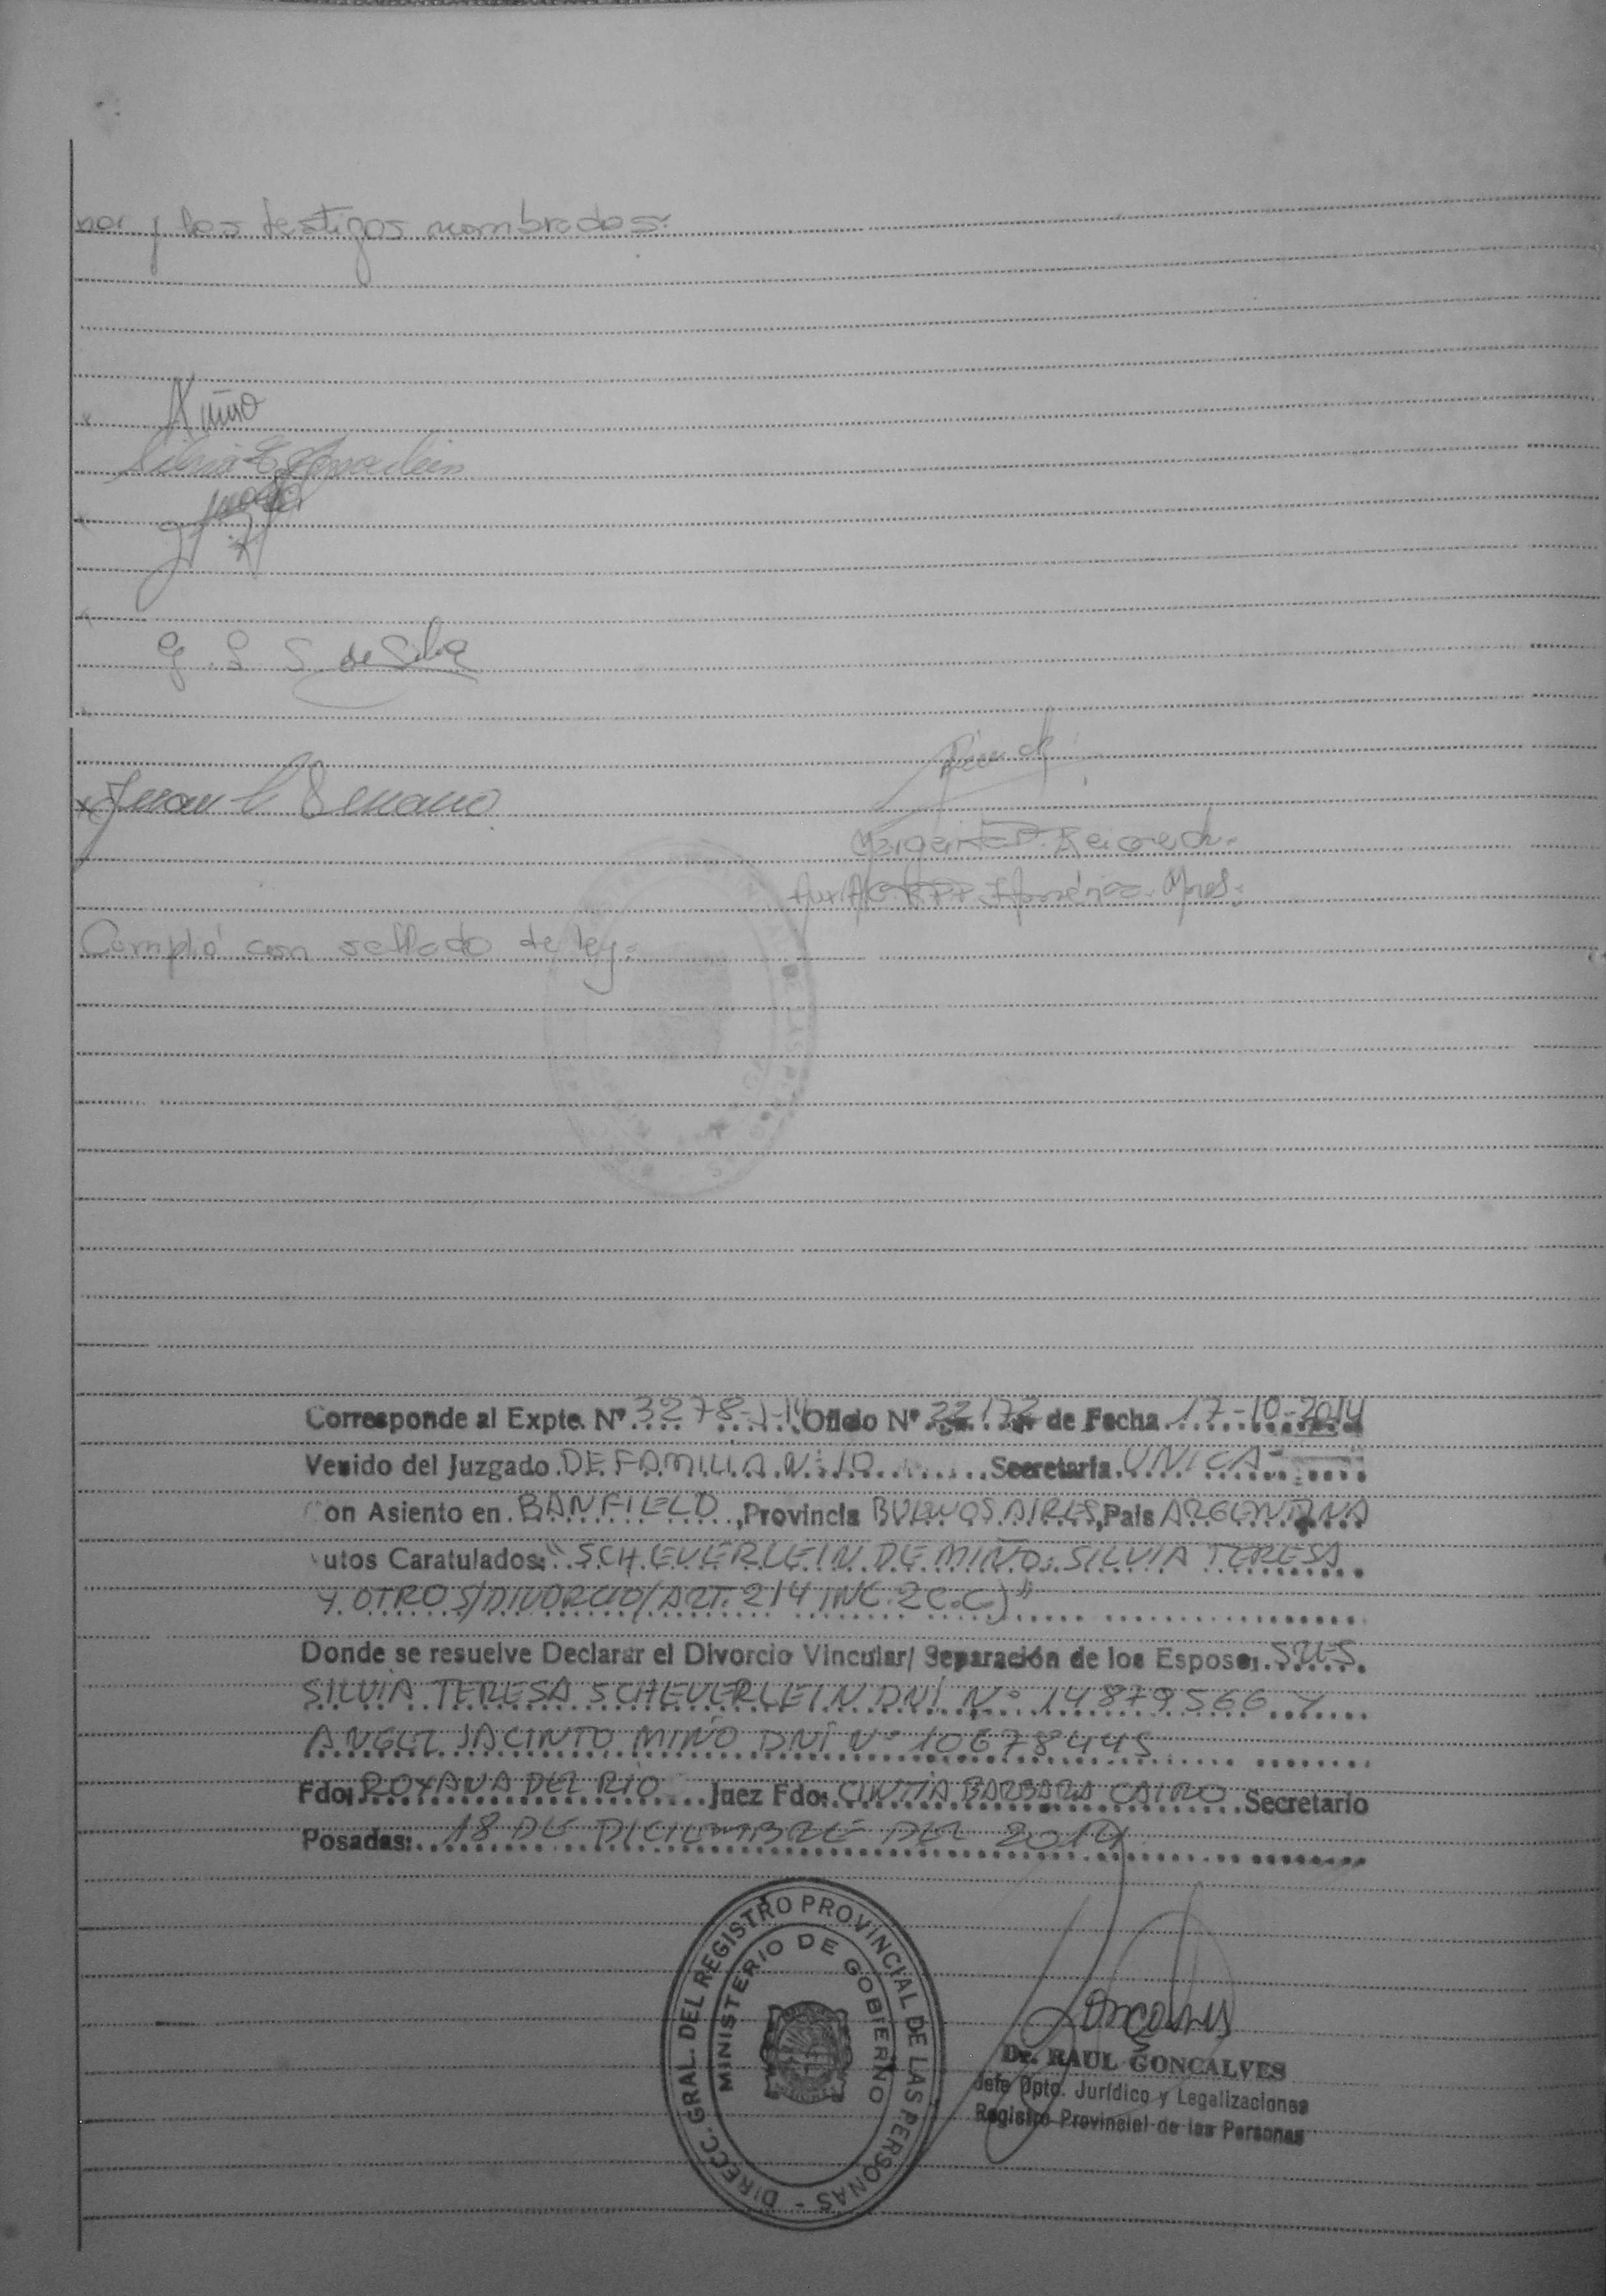 nor y los testigos nombrados.
Miño
g. L. S. de Silva
Cumplió con sellado de ley.
Corresponde al Expte. Nº 3278-J-14 Oficio Nº 22172 de Fecha 17-10-2014
Venido del Juzgado DE FAMILIA Nº 10 Secretaría UNICA-
on Asiento en BANFIELD, Provincia BUENOS AIRES, País ARGENTINA
utos Caratulados: "SCHEUERLEIN DE MIÑO: SILVIA TERESA
Y OTROS/DIVORCIO/ART. 214 INC. 2 C.C)"
Donde se resuelve Declarar el Divorcio Vincular/ Separación de los Esposos: SRES
SILVIA TERESA SCHEUERLEIN DNI Nº 14879566 Y
ANGEL JACINTO MIÑO DNI Nº 10678445
Fdo: ROXANA DEL RIO Juez Fdo: CINTIA BARBARA CAIRO Secretario
Posadas: 18 DE DICIEMBRE DEL 2014
DIRECC. GRAL. DEL REGISTRO PROVINCIAL DE LAS PERSONAS -
MINISTERIO DE GOBIERNO
Dr. RAUL GONCALVES
Jefe Dpto. Jurídico y Legalizaciones
Registro Provincial de las Personas